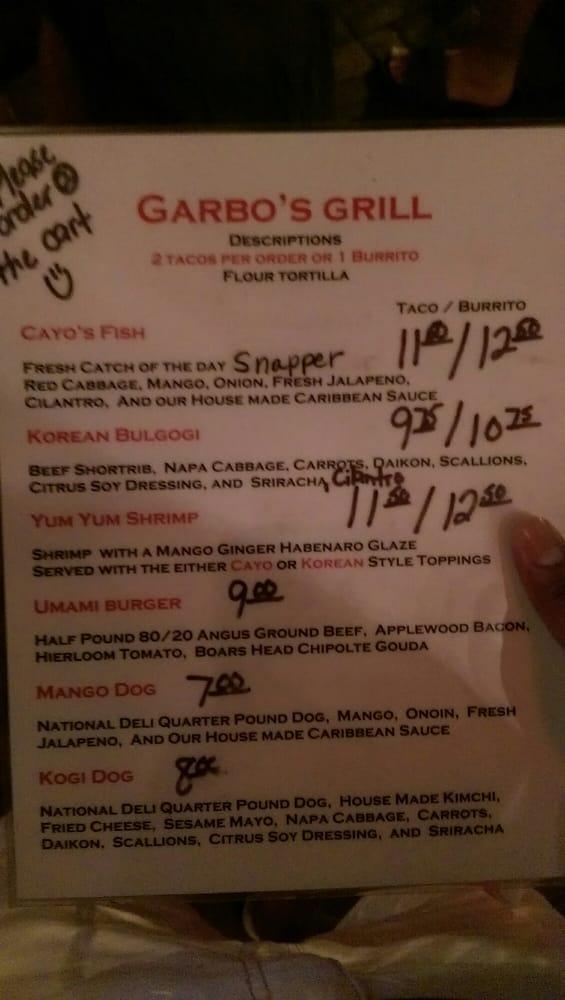 Please
order @
the cart
GARBO'S GRILL
DESCRIPTIONS
2 TACOS PER ORDER OR 1 BURRITO
FLOUR TORTILLA
TACO / BURRITO
CAYO'S FISH
11.50 / 12.50
FRESH CATCH OF THE DAY Snapper
RED CABBAGE, MANGO, ONION, FRESH JALAPENO,
CILANTRO, AND OUR HOUSE MADE CARIBBEAN SAUCE
KOREAN BULGOGI
9.75 / 10.75
BEEF SHORTRIB, NAPA CABBAGE, CARROTS, DAIKON, SCALLIONS,
CITRUS SOY DRESSING, AND SRIRACHA, Cilantro
YUM YUM SHRIMP
11.50 / 12.50
SHRIMP WITH A MANGO GINGER HABENARO GLAZE
SERVED WITH THE EITHER CAYO OR KOREAN STYLE TOPPINGS
UMAMI BURGER 9.00
HALF POUND 80/20 ANGUS GROUND BEEF, APPLEWOOD BACON,
HIERLOOM TOMATO, BOARS HEAD CHIPOLTE GOUDA
MANGO DOG 7.00
NATIONAL DELI QUARTER POUND DOG, MANGO, ONOIN, FRESH
JALAPENO, AND OUR HOUSE MADE CARIBBEAN SAUCE
KOGI DOG 8.00
NATIONAL DELI QUARTER POUND DOG, HOUSE MADE KIMCHI,
FRIED CHEESE, SESAME MAYO, NAPA CABBAGE, CARROTS,
DAIKON, SCALLIONS, CITRUS SOY DRESSING, AND SRIRACHA